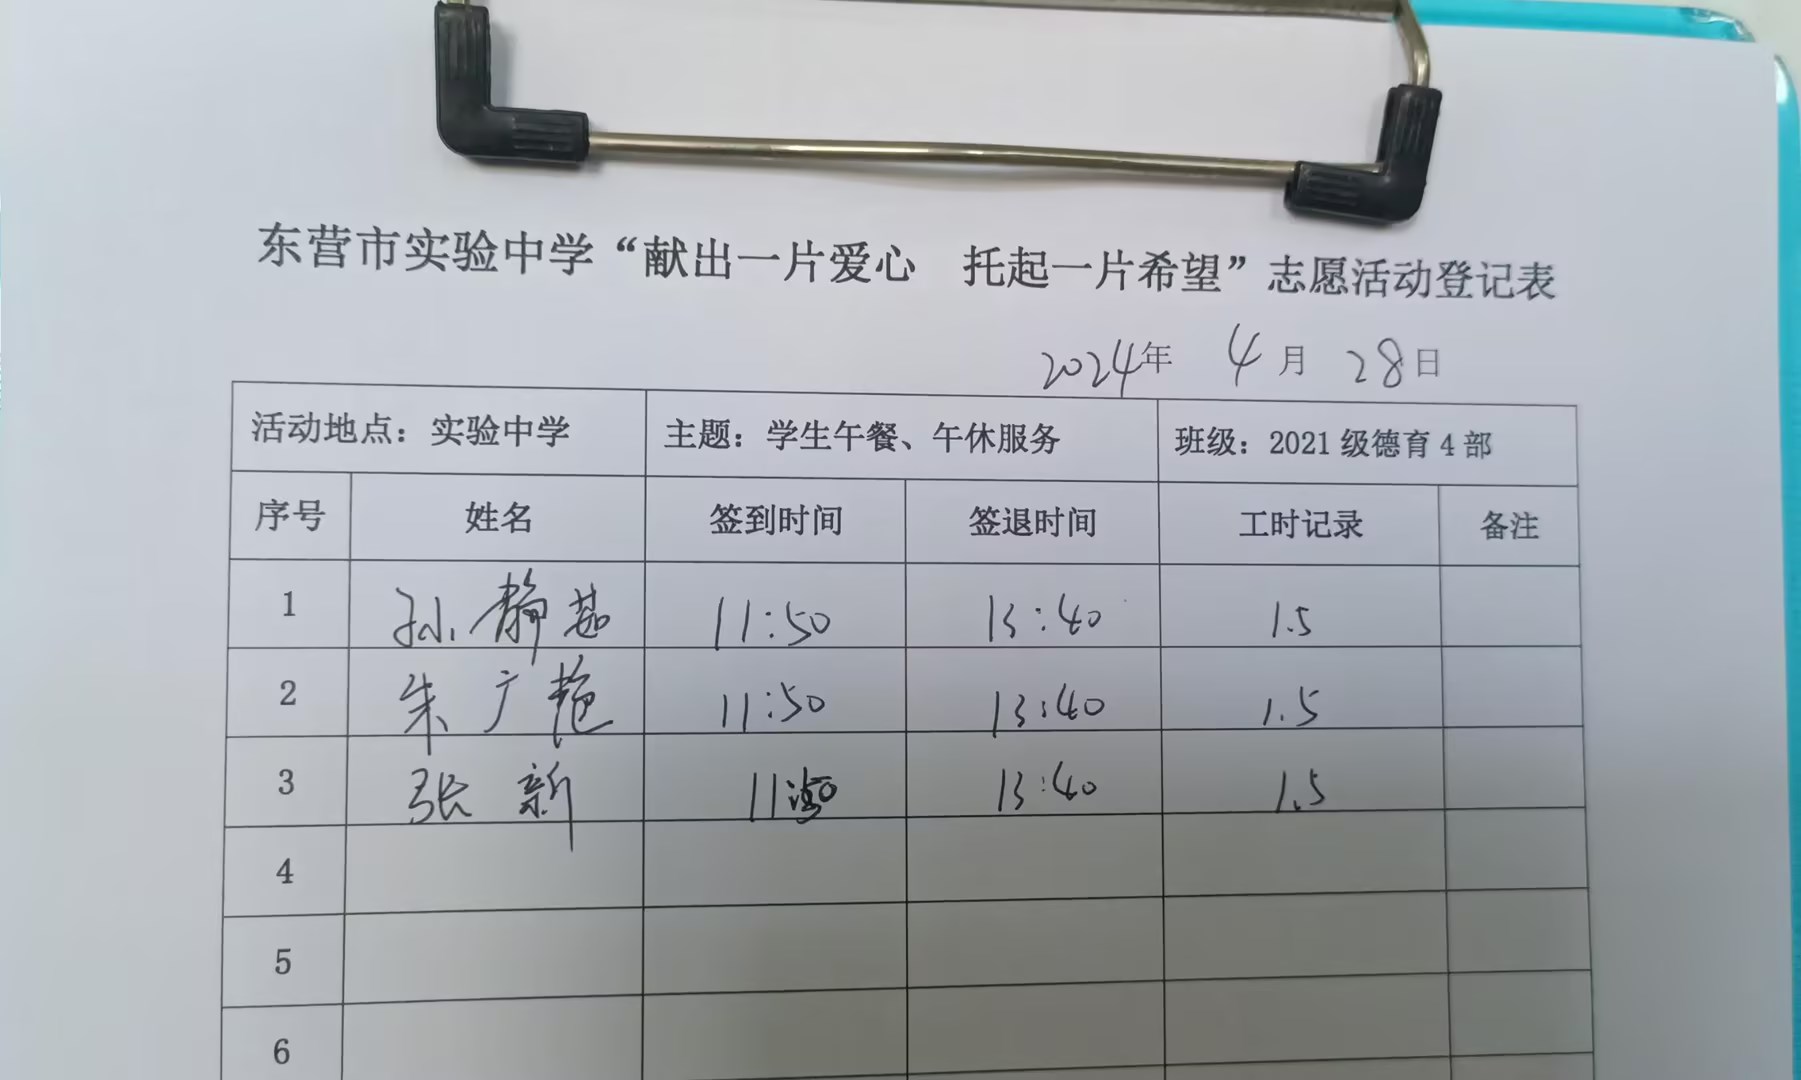 东营市实验中学“献出一片爱心 托起一片希望”志愿活动登记表
2024年 4月 28日
活动地点：实验中学 主题：学生午餐、午休服务 班级：2021级德育4部
序号 姓名 签到时间 签退时间 工时记录 备注
1 孙静茹 11:50 13:40 1.5
2 朱广艳 11:50 13:40 1.5
3 张新 11:50 13:40 1.5
4
5
6